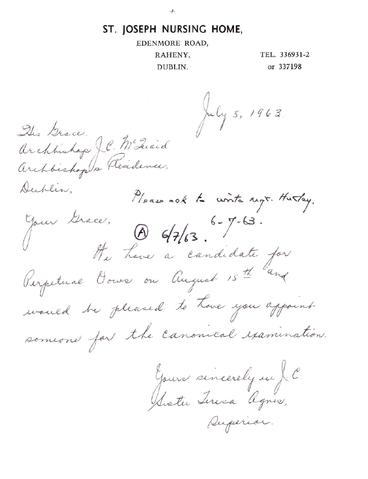 ST. JOSEPH NURSING HOME,
EDENMORE ROAD,
RAHENY,
DUBLIN.
TEL. 336931-2
or 337198
July 5, 1963
His Grace
Archbishop J.C. McQuaid
Archbishop's Residence,
Dublin.
Please ask to write
6-7-63.
Your Grace,
(A) 6/7/63.
We have a candidate for
Perpetual Vows on August 15th and
would be pleased to have you appoint
someone for the canonical examination.
Yours sincerely in J.C
Sister Teresa Agnes,
Superior.